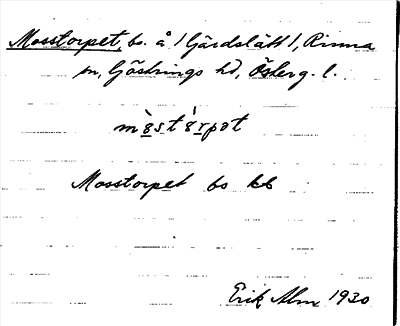 Mosstorpet, bs. å (Gärdslätt), Rinna
sn, Göstrings hd, Österg. l.
mòstórpət
Mosstorpet bs kb
Erik Alm 1930